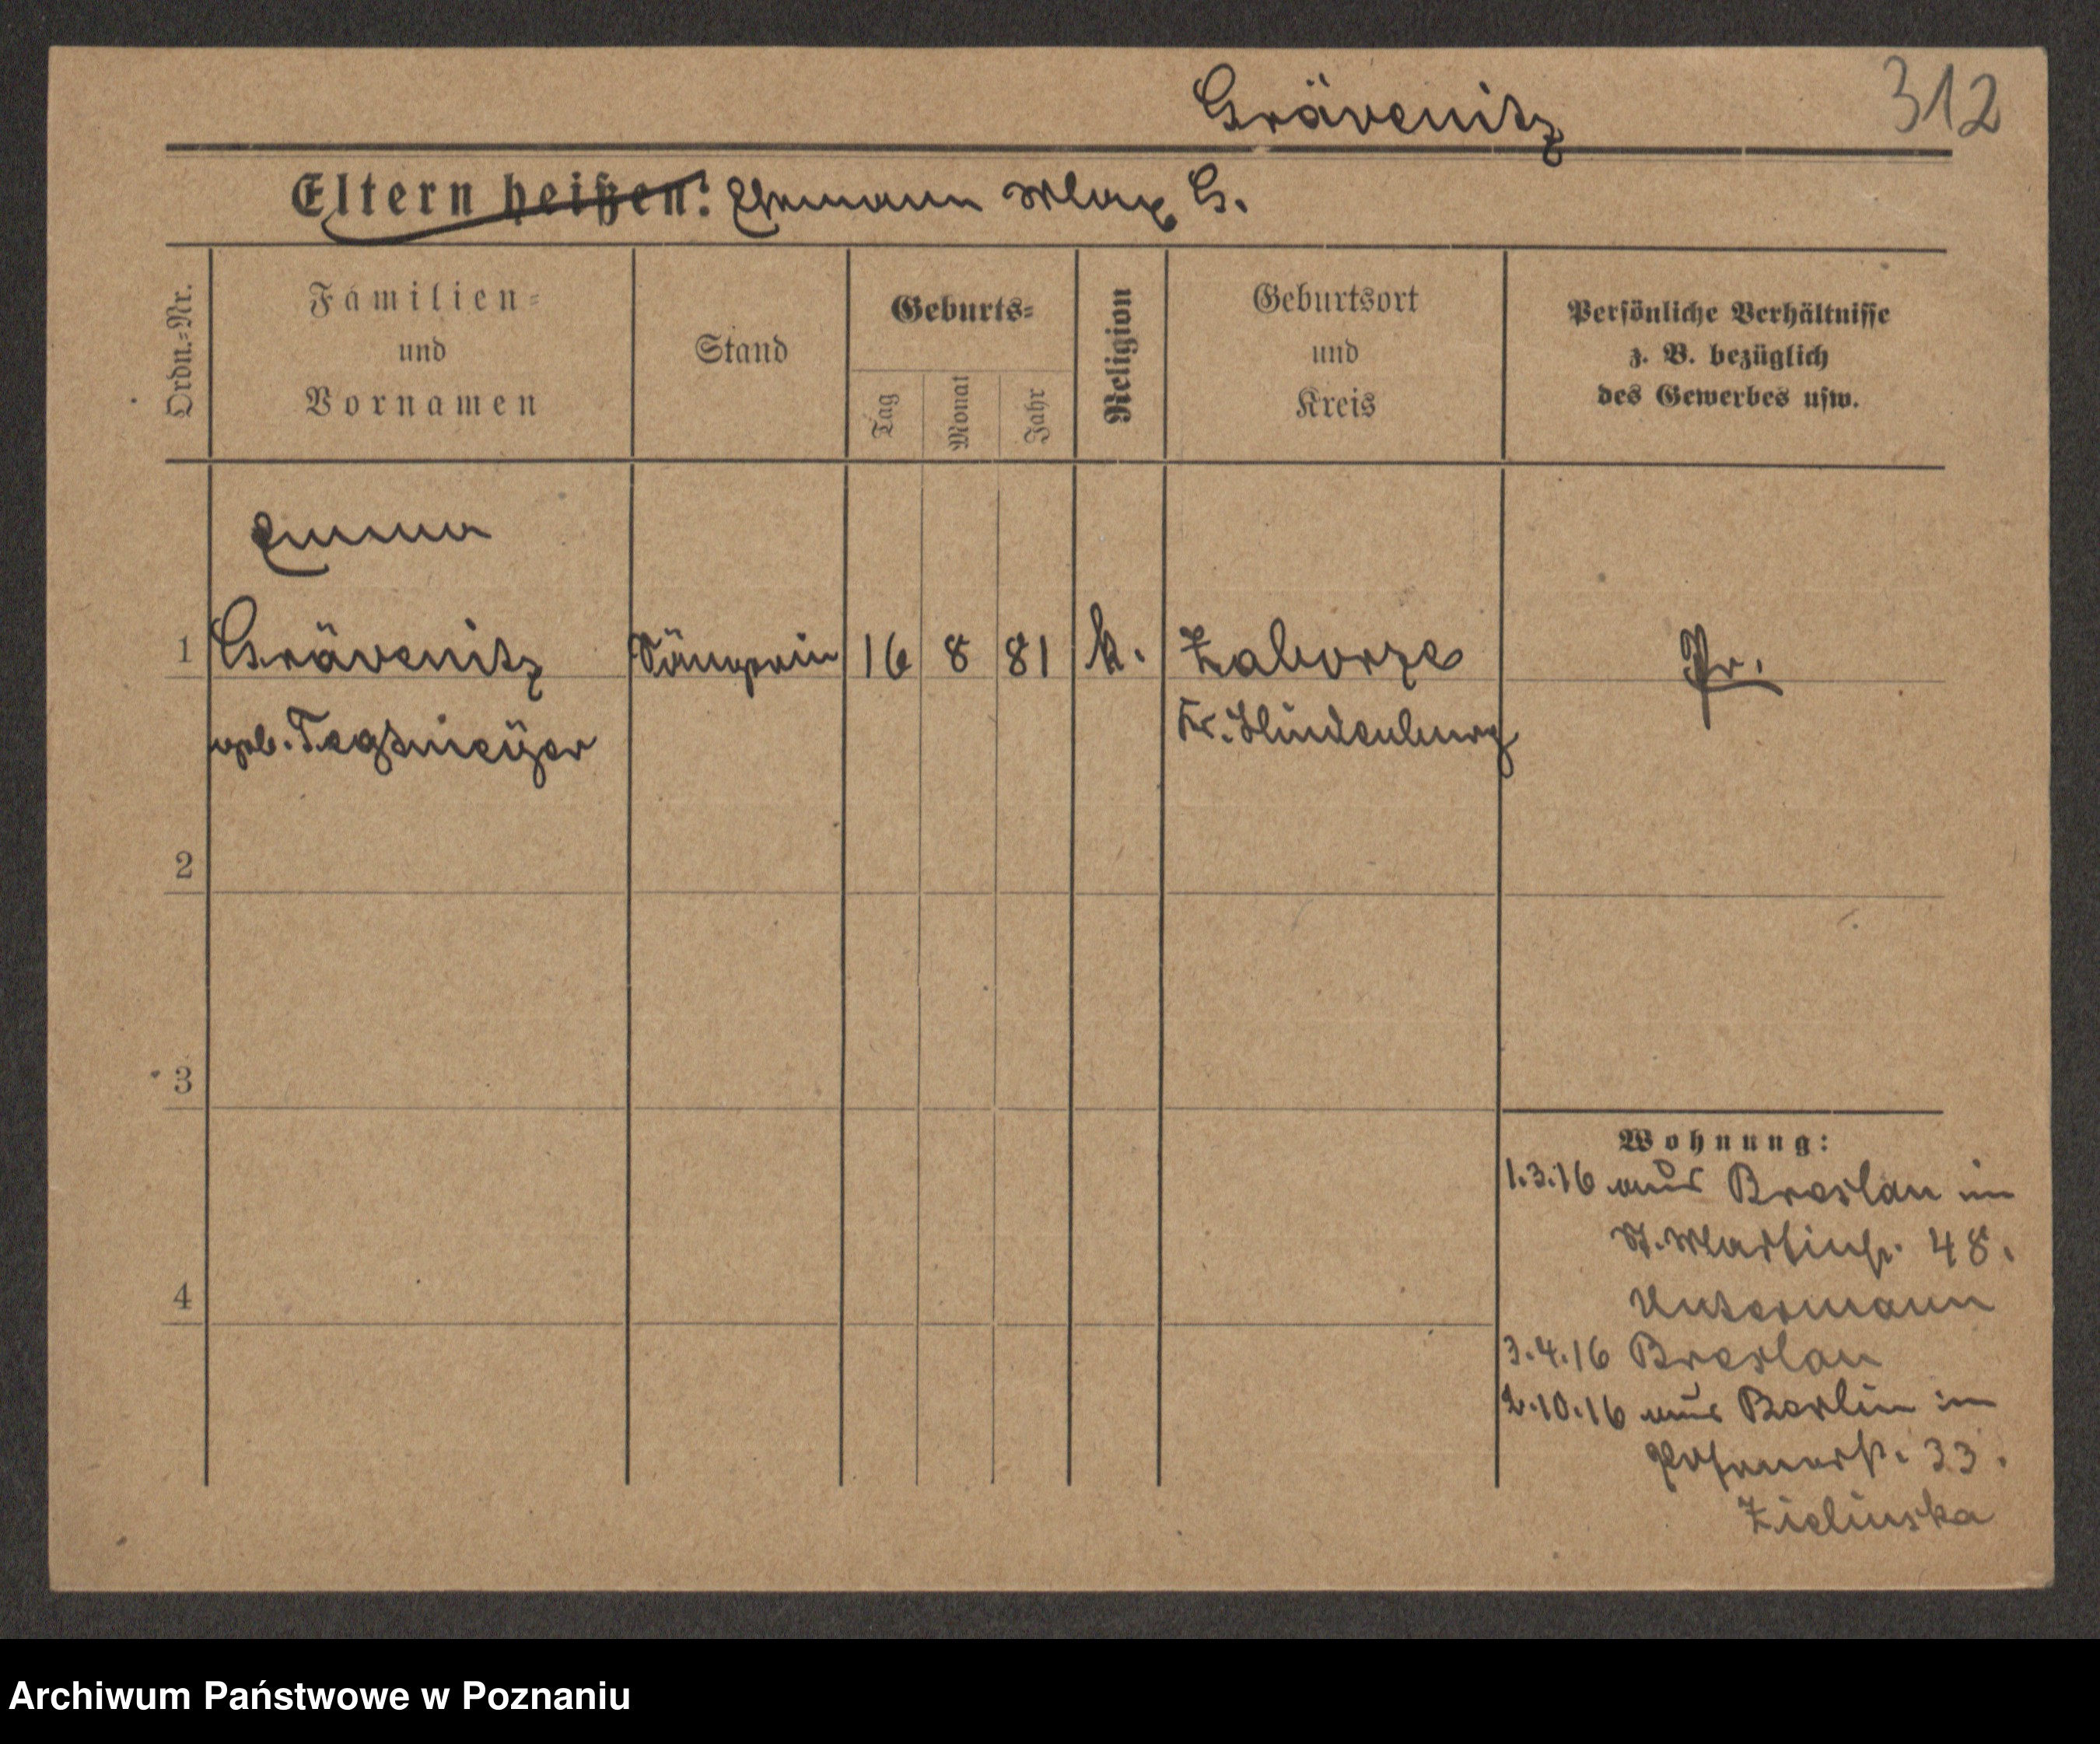 Grävenitz 312
Eltern heißen: Ehemann Max G.
Ordn.-Nr.
Familien-
und
Vornamen
Stand
Geburts-
Tag
Monat
Jahr
Religion
Geburtsort
und
Kreis
Persönliche Verhältnisse
z. B. bezüglich
des Gewerbes usw.
Emma
1 Grävenitz Sängerin 16 8 81 k. Zaborze Pr.
geb. Tegtmeÿer Kr. Hindenburg
2
3
4
Wohnung:
1.3.16 aus Breslau in
St. Martinstr. 48.
Untermann
3.4.16 Breslau
2.10.16 aus Berlin in
Posenerstr. 33.
Zielinska
Archiwum Państwowe w Poznaniu